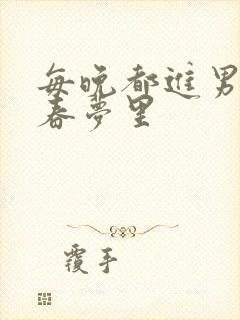 每晚都进男
春梦里
覆手